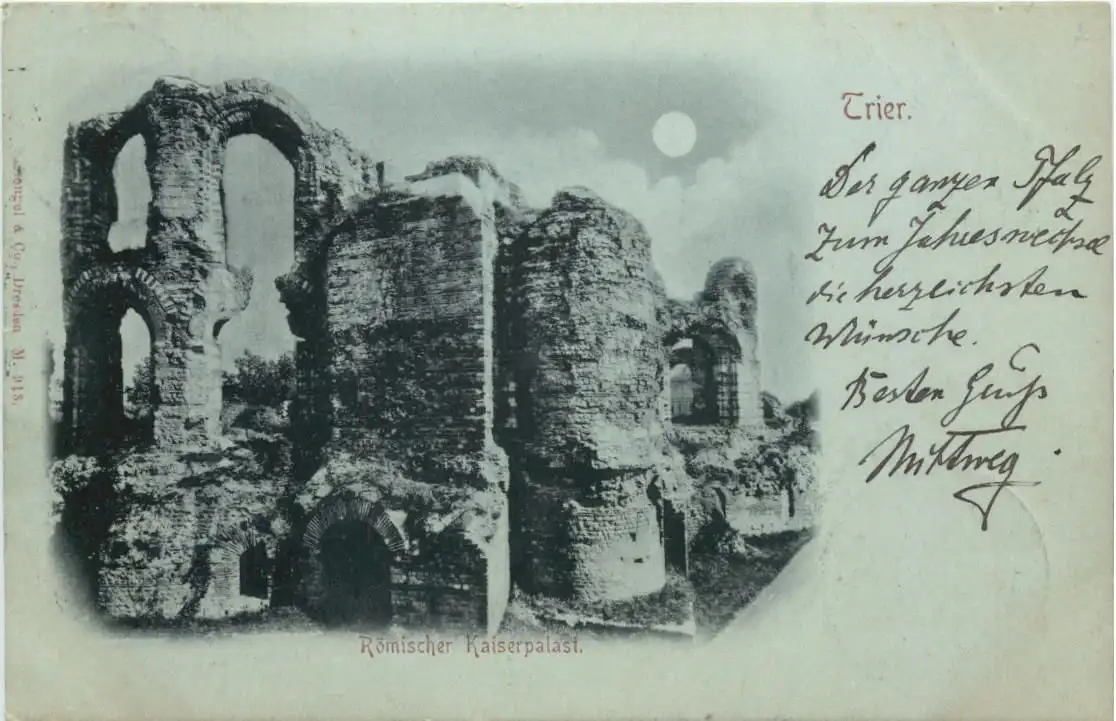 Trier.
Der ganzen Pfalz
zum Jahreswechsel
die herzlichsten
Wünsche.
Besten Gruß
Mittweg
Römischer Kaiserpalast.
& Co., Dresden M. 918.